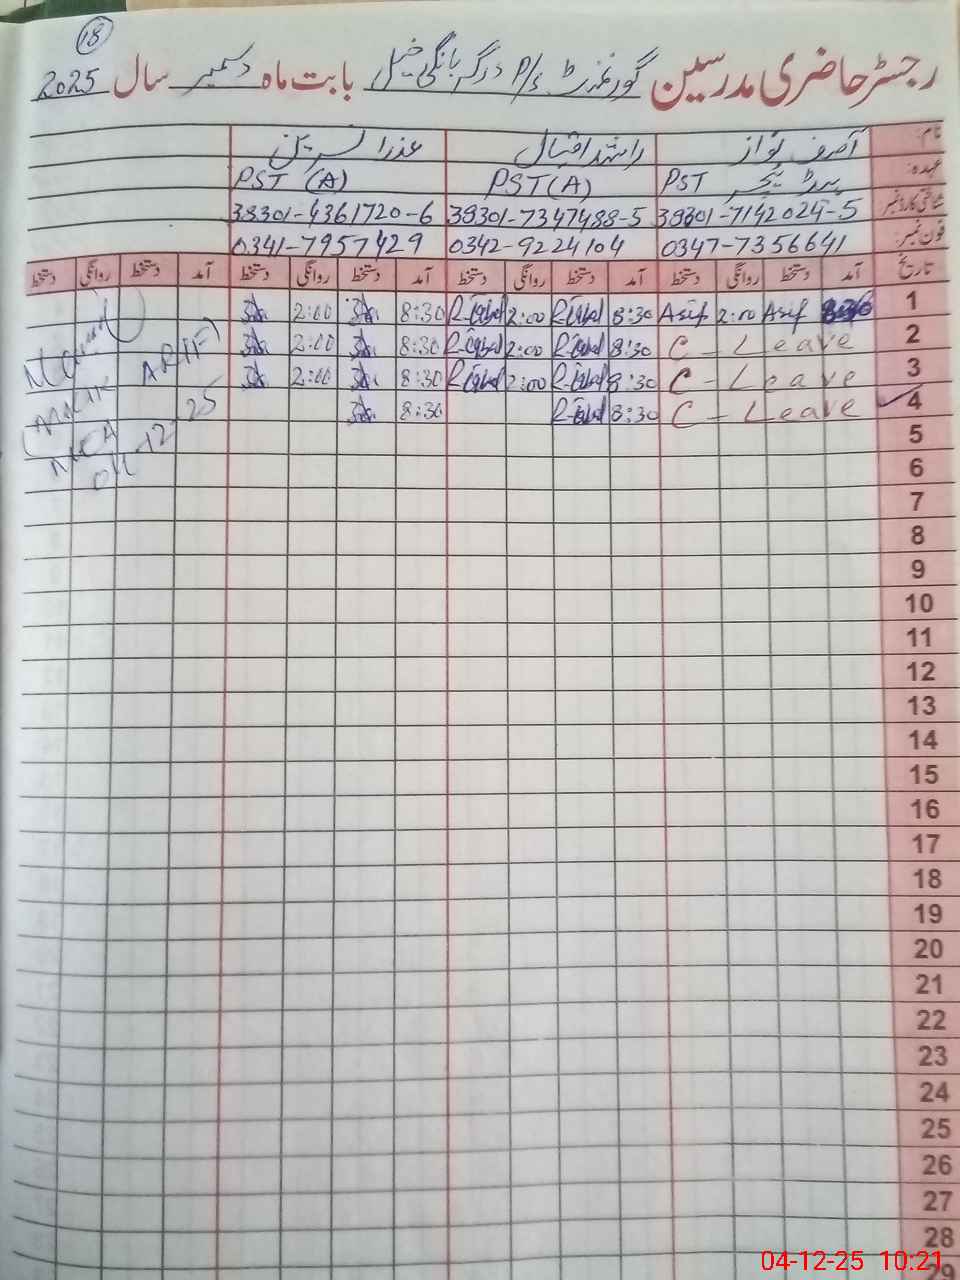 18
رجسٹر حاضری مدرسین گورنمنٹ P/s درگہ بانگی خیل بابت ماہ دسمبر سال 2025
نام: آصف نواز راشد اقبال عذرا نسرین
عہدہ: PST ہیڈ ٹیچر PST (A) PST (A)
شناختی کارڈ نمبر 38301-7142024-5 38301-7347488-5 38301-4361720-6
فون نمبر: 0347-7356641 0342-9224104 0341-7957429
تاریخ آمد دستخط روانگی دستخط آمد دستخط روانگی دستخط آمد دستخط روانگی دستخط آمد دستخط روانگی دستخط
1 8:30 Asif 2:00 Asif 8:30 R-Iqbal 2:00 R-Iqbal 8:30 2:00
2 C - Leave 8:30 R-Iqbal 2:00 R-Iqbal 8:30 2:00
3 C - Leave 8:30 R-Iqbal 2:00 R-Iqbal 8:30 2:00
4 C - Leave 8:30 R-Iqbal 8:30
ARIF)
(MALIK
MEA
04-12-25
5
6
7
8
9
10
11
12
13
14
15
16
17
18
19
20
21
22
23
24
25
26
27
28
29
04-12-25 10:21